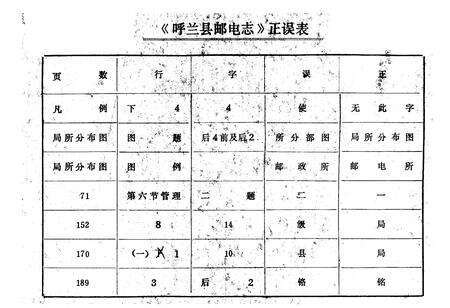 《呼兰县邮电志》正误表
页 数 行 字 误 正
凡 例 下 4 4 使 无此字
局所分布图 图 题 后4前及后2 所分部图 局所分布图
局所分布图 图 例 邮政所 邮电所
71 第六节管理 二 题 二 一
152 8 14 级 局
170 (一) 1 10 县 局
189 3 后 2 铬 铭